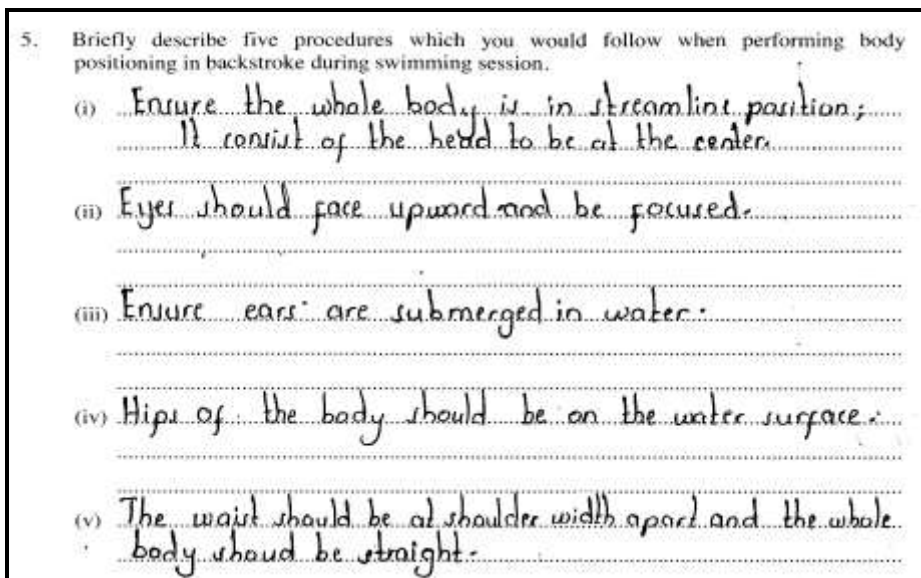 5. Briefly describe five procedures which you would follow when performing body
positioning in backstroke during swimming session.
(i) Ensure the whole body is in streamline position;
It consist of the head to be at the center.
(ii) Eyes should face upward and be focused.
(iii) Ensure ears are submerged in water.
(iv) Hips of the body should be on the water surface.
(v) The waist should be at shoulder width apart and the whole
body shoud be straight.